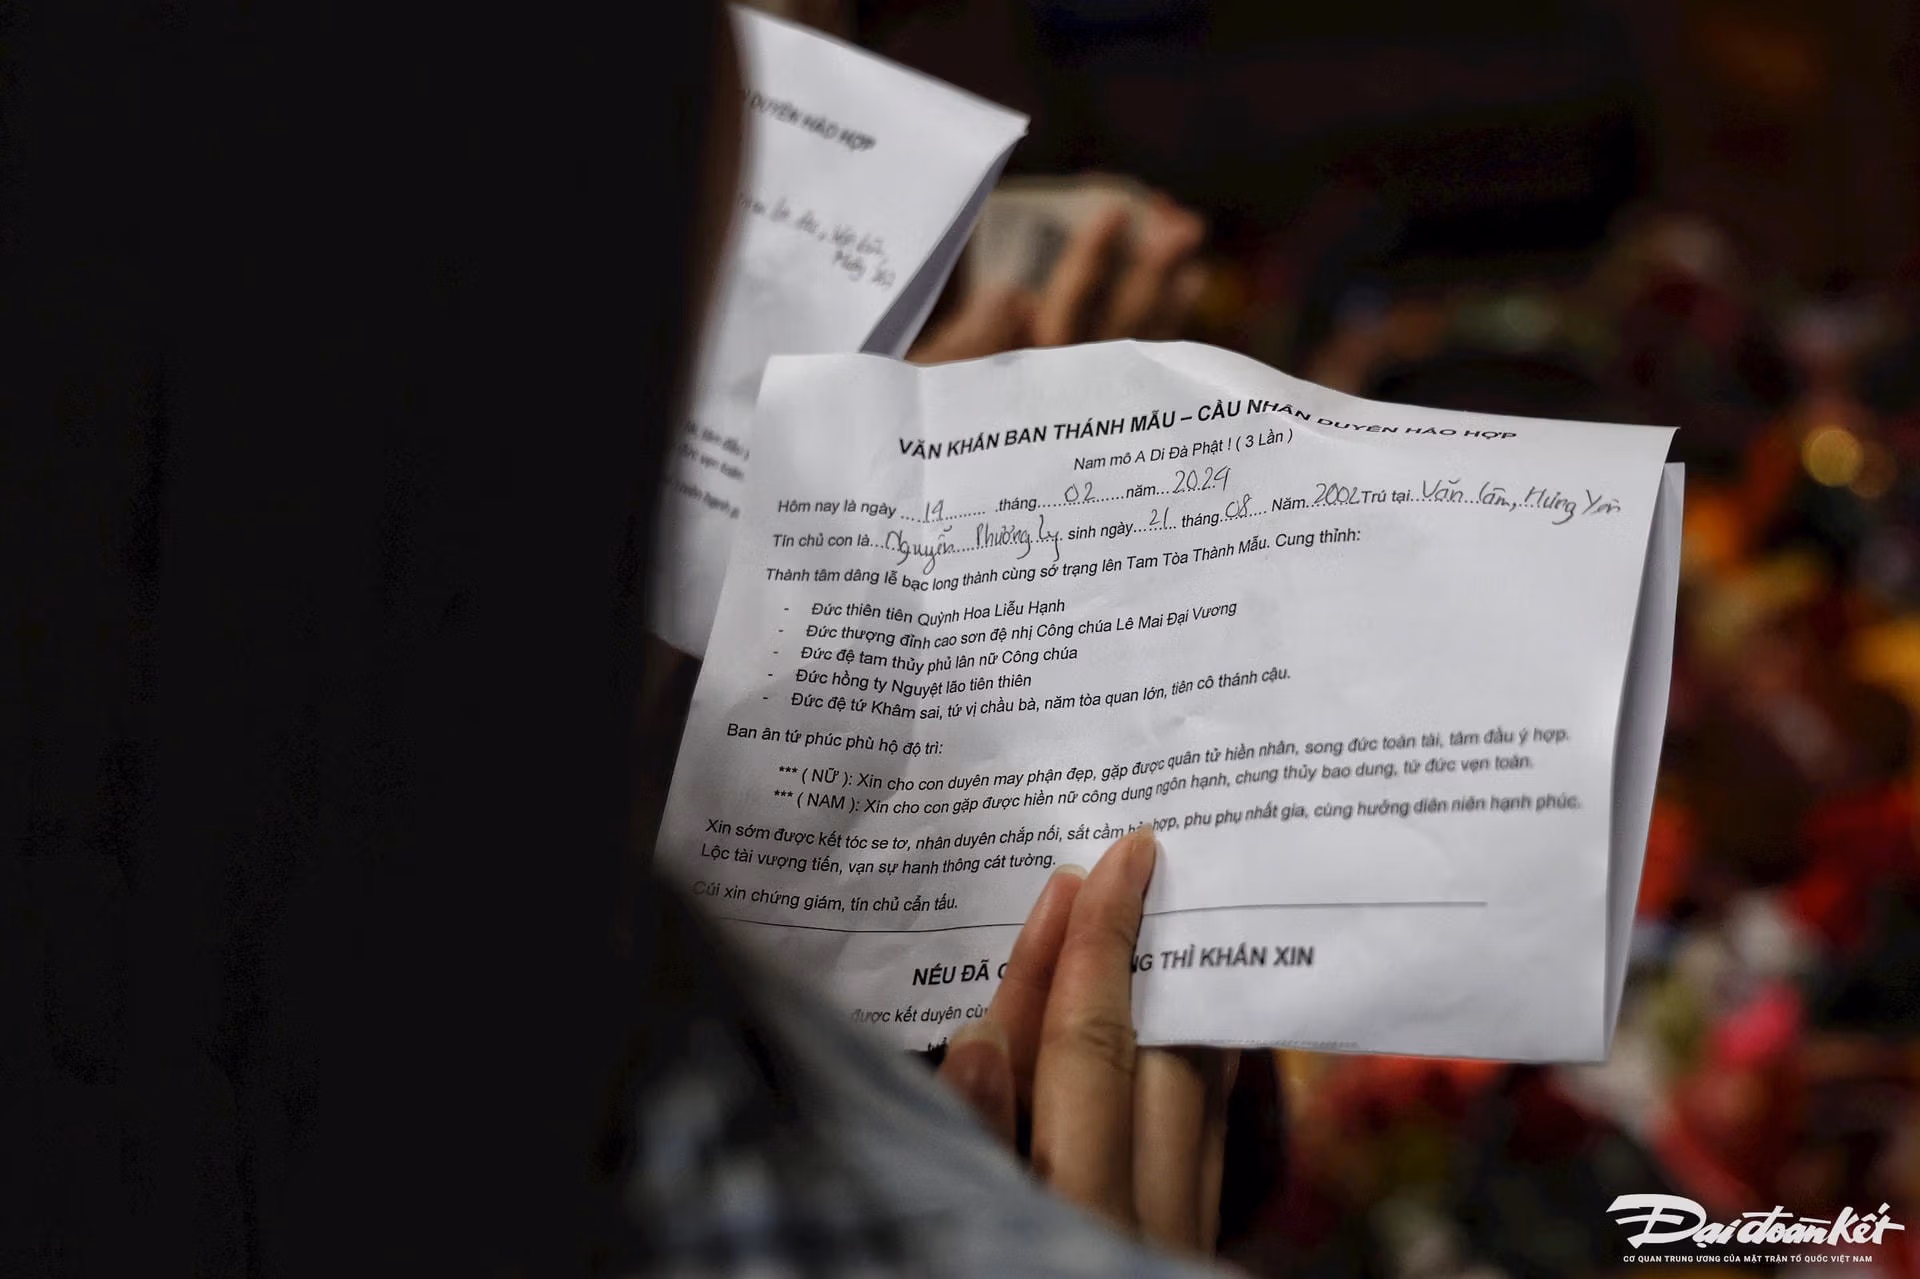 DUYÊN HẢO HỢP
VĂN KHẤN BAN THÁNH MẪU – CẦU NHÂN DUYÊN HẢO HỢP
Nam mô A Di Đà Phật ! ( 3 Lần )
Hôm nay là ngày ....19......... .tháng....02......năm...2024
Tín chủ con là...Nguyễn....Phương Ly. sinh ngày...21.... tháng.08.... Năm..2002.Trú tại..Văn Lâm, Hưng Yên
Thành tâm dâng lễ bạc long thành cùng sớ trạng lên Tam Tòa Thánh Mẫu. Cung thỉnh:
- Đức thiên tiên Quỳnh Hoa Liễu Hạnh
- Đức thượng đỉnh cao sơn đệ nhị Công chúa Lê Mai Đại Vương
- Đức đệ tam thủy phủ lân nữ Công chúa
- Đức hồng ty Nguyệt lão tiên thiên
- Đức đệ tứ Khâm sai, tứ vị chầu bà, năm tòa quan lớn, tiên cô thánh cậu.
Ban ân tứ phúc phù hộ độ trì:
*** ( NỮ ): Xin cho con duyên may phận đẹp, gặp được quân tử hiền nhân, song đức toàn tài, tâm đầu ý hợp.
*** ( NAM ): Xin cho con gặp được hiền nữ công dung ngôn hạnh, chung thủy bao dung, tứ đức vẹn toàn.
Xin sớm được kết tóc se tơ, nhân duyên chắp nối, sắt cầm hợp, phu phụ nhất gia, cùng hưởng diên niên hạnh phúc.
Lộc tài vượng tiến, vạn sự hanh thông cát tường.
Cúi xin chứng giám, tín chủ cẩn tấu.
NẾU ĐÃ THÌ KHẤN XIN
được kết duyên
Đại đoàn Kết
CƠ QUAN TRUNG ƯƠNG CỦA MẶT TRẬN TỔ QUỐC VIỆT NAM